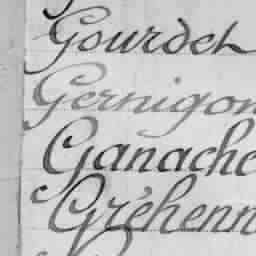 Gourdel
Gernigon
Ganache
Gréhenn